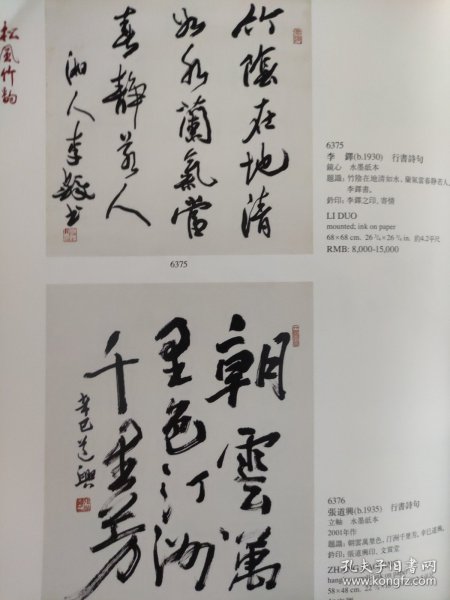 松風竹韵
竹陰在地清
如水蘭氣當
春静若人
湘人李鐸书
6375
6375
李 鐸(b.1930) 行書詩句
鏡心 水墨紙本
題識：竹陰在地清如水，蘭氣當春靜若人，
李鐸書。
鈐印：李鐸之印、寄情
LI DUO
mounted; ink on paper
68×68 cm. 26 3/4×26 3/4 in. 約4.2平尺
RMB: 8,000-15,000
朝雲萬
里色汀洲
千里芳
辛巳道興
6376
張道興(b.1935) 行書詩句
立軸 水墨紙本
2001年作
題識：朝雲萬里色，汀洲千里芳，辛巳道興。
鈐印：張道興印、文質堂
ZH
hang
58×48 cm. 22
孔夫子旧书网